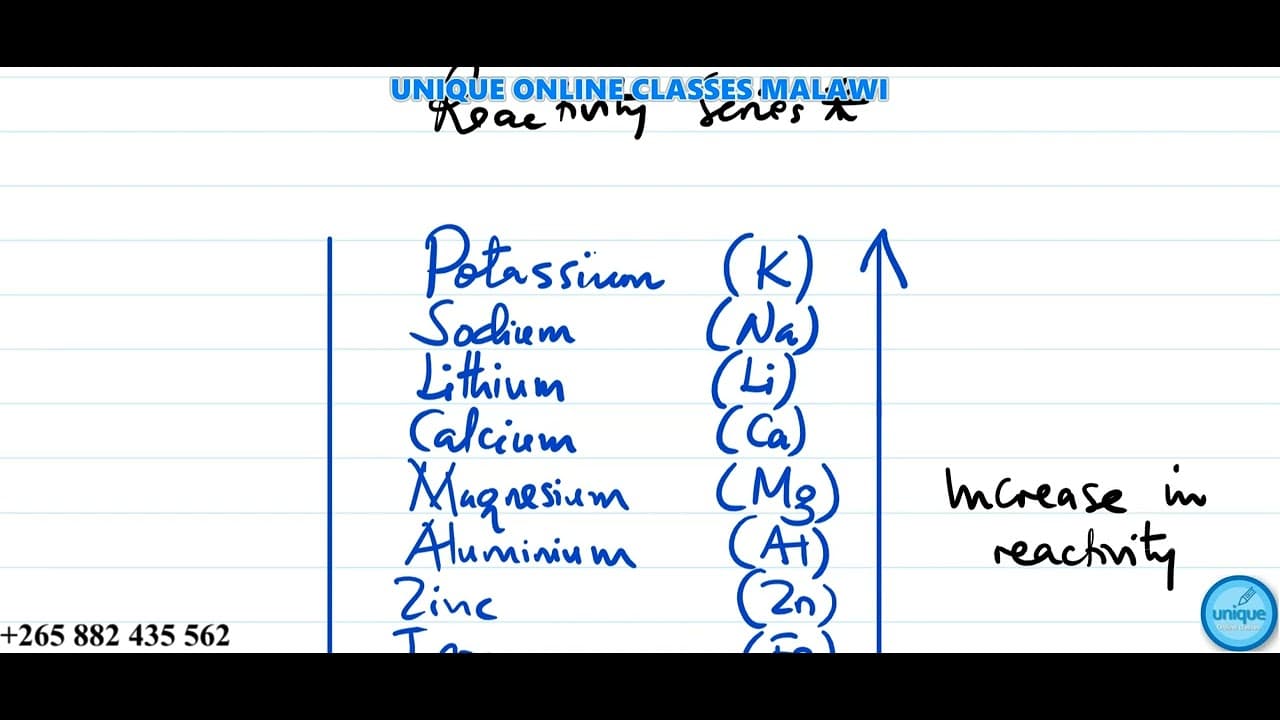 UNIQUE ONLINE CLASSES MALAWI
Reactivity Series *
Potassium (K)
Sodium (Na)
Lithium (Li)
Calcium (Ca)
Magnesium (Mg)
Aluminium (Al)
Zinc (Zn)
Increase in
reactivity
unique
Online classes
+265 882 435 562